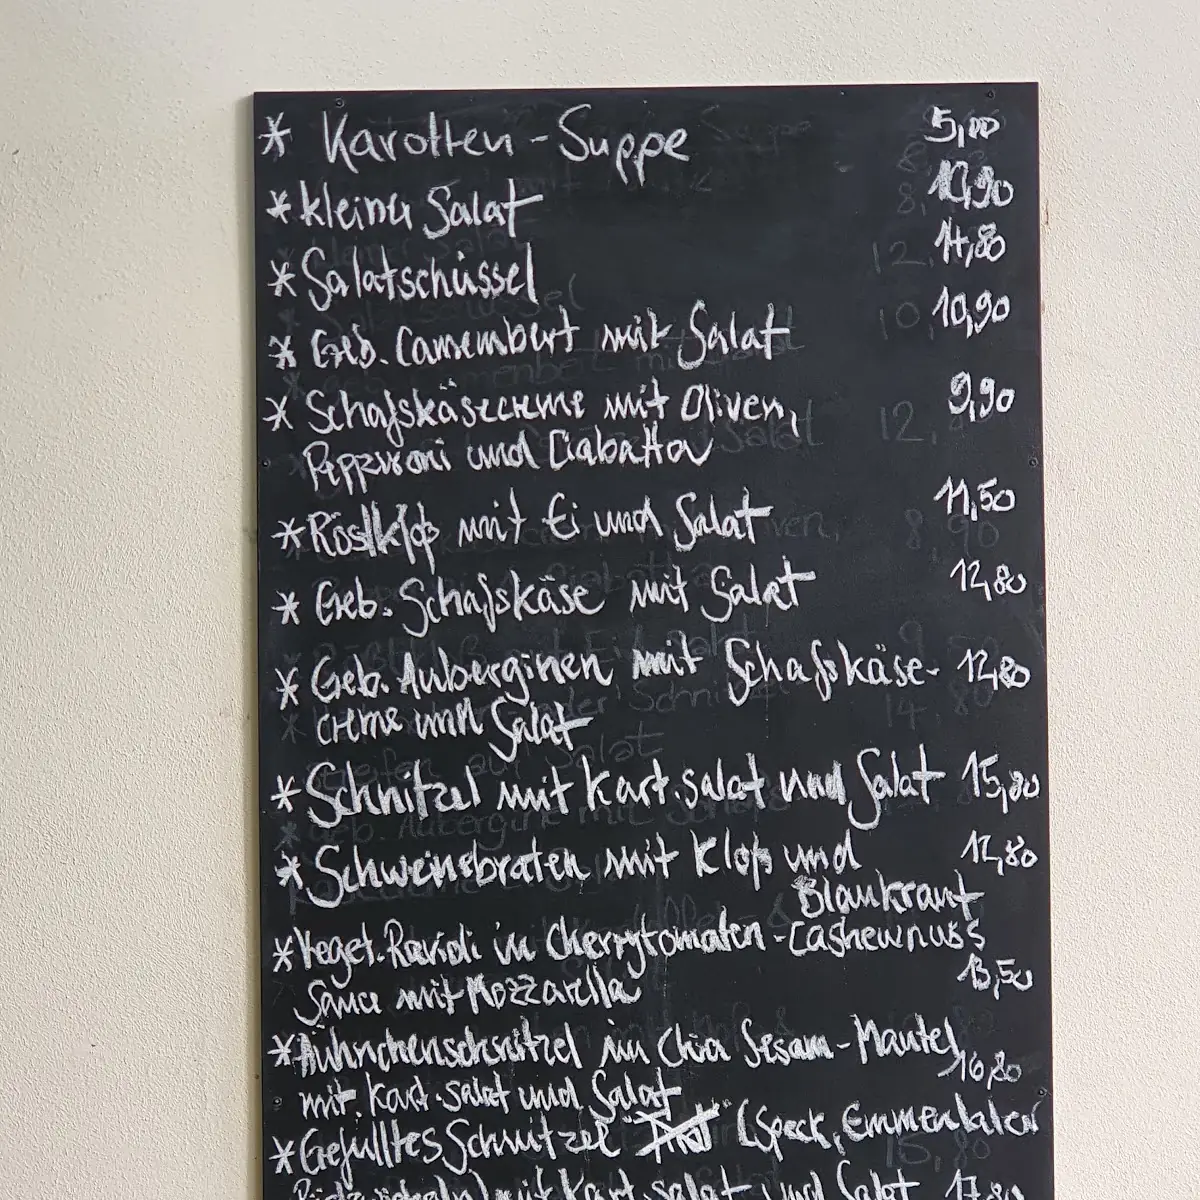 * Karotten-Suppe 5,00
* kleiner Salat 10,90
* Salatschüssel 14,80
* Geb. Camembert mit Salat 10,90
* Schafskäsecreme mit Oliven, 9,90
Pepperoni und Ciabatta
* Röstkloß mit Ei und Salat 11,50
* Geb. Schafskäse mit Salat 12,80
* Geb. Auberginen mit Schafskäse- 12,80
creme und Salat
* Schnitzel mit Kart.salat und Salat 15,80
* Schweinsbraten mit Kloß und 12,80
Blaukraut
* Veget. Ravioli in Cherrytomaten-Cashewnuss
Sauce mit Mozzarella 13,50
* Hühnchenschnitzel im Chia Sesam-Mantel
mit Kart.salat und Salat 16,80
* Gefülltes Schnitzel (Speck, Emmentaler
mit Kart.salat und Salat 17,80